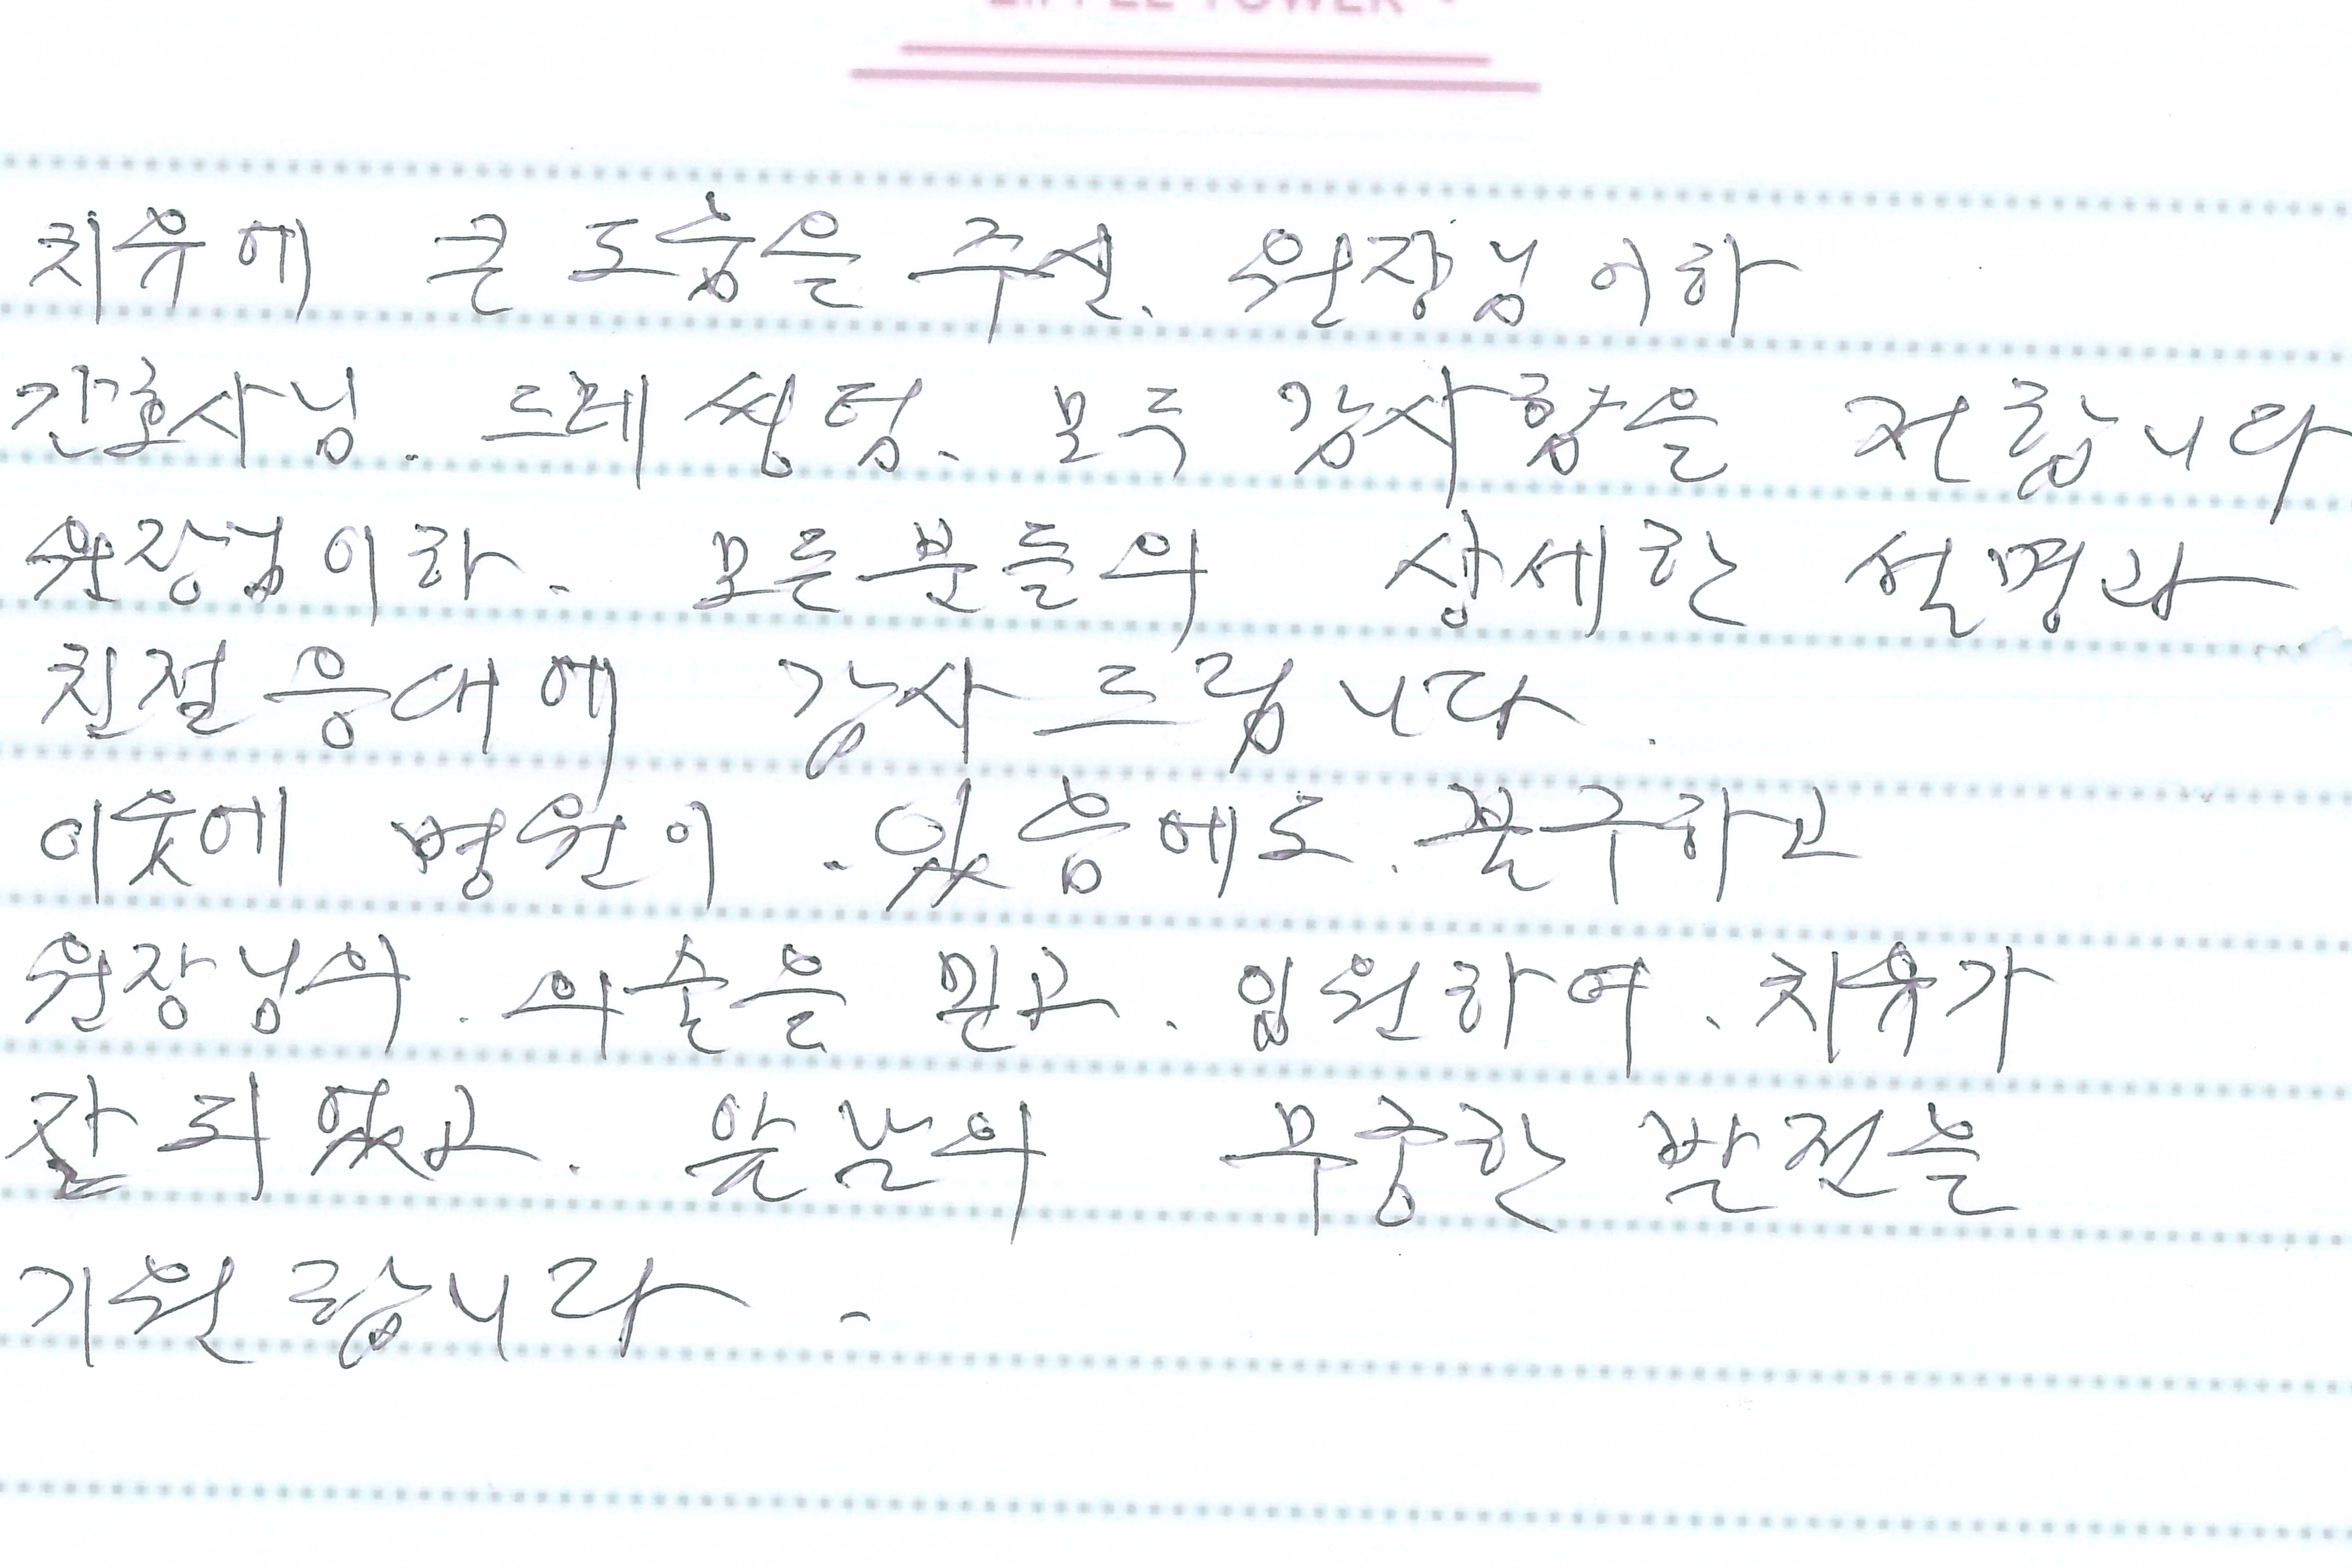 EIFFEL TOWER
치유에 큰 도움을 주신. 원장님 이하
간호사님. 드레싱팀. 모두 감사함을 전합니다
원장님이하. 모든분들의 상세한 설명과
친절응대에 감사드립니다.
이웃에 병원이 있음에도. 불구하고
원장님의. 의술을 믿고. 입원하여. 치유가
잘 되었고. 앞날의 무궁한 발전을
기원합니다.